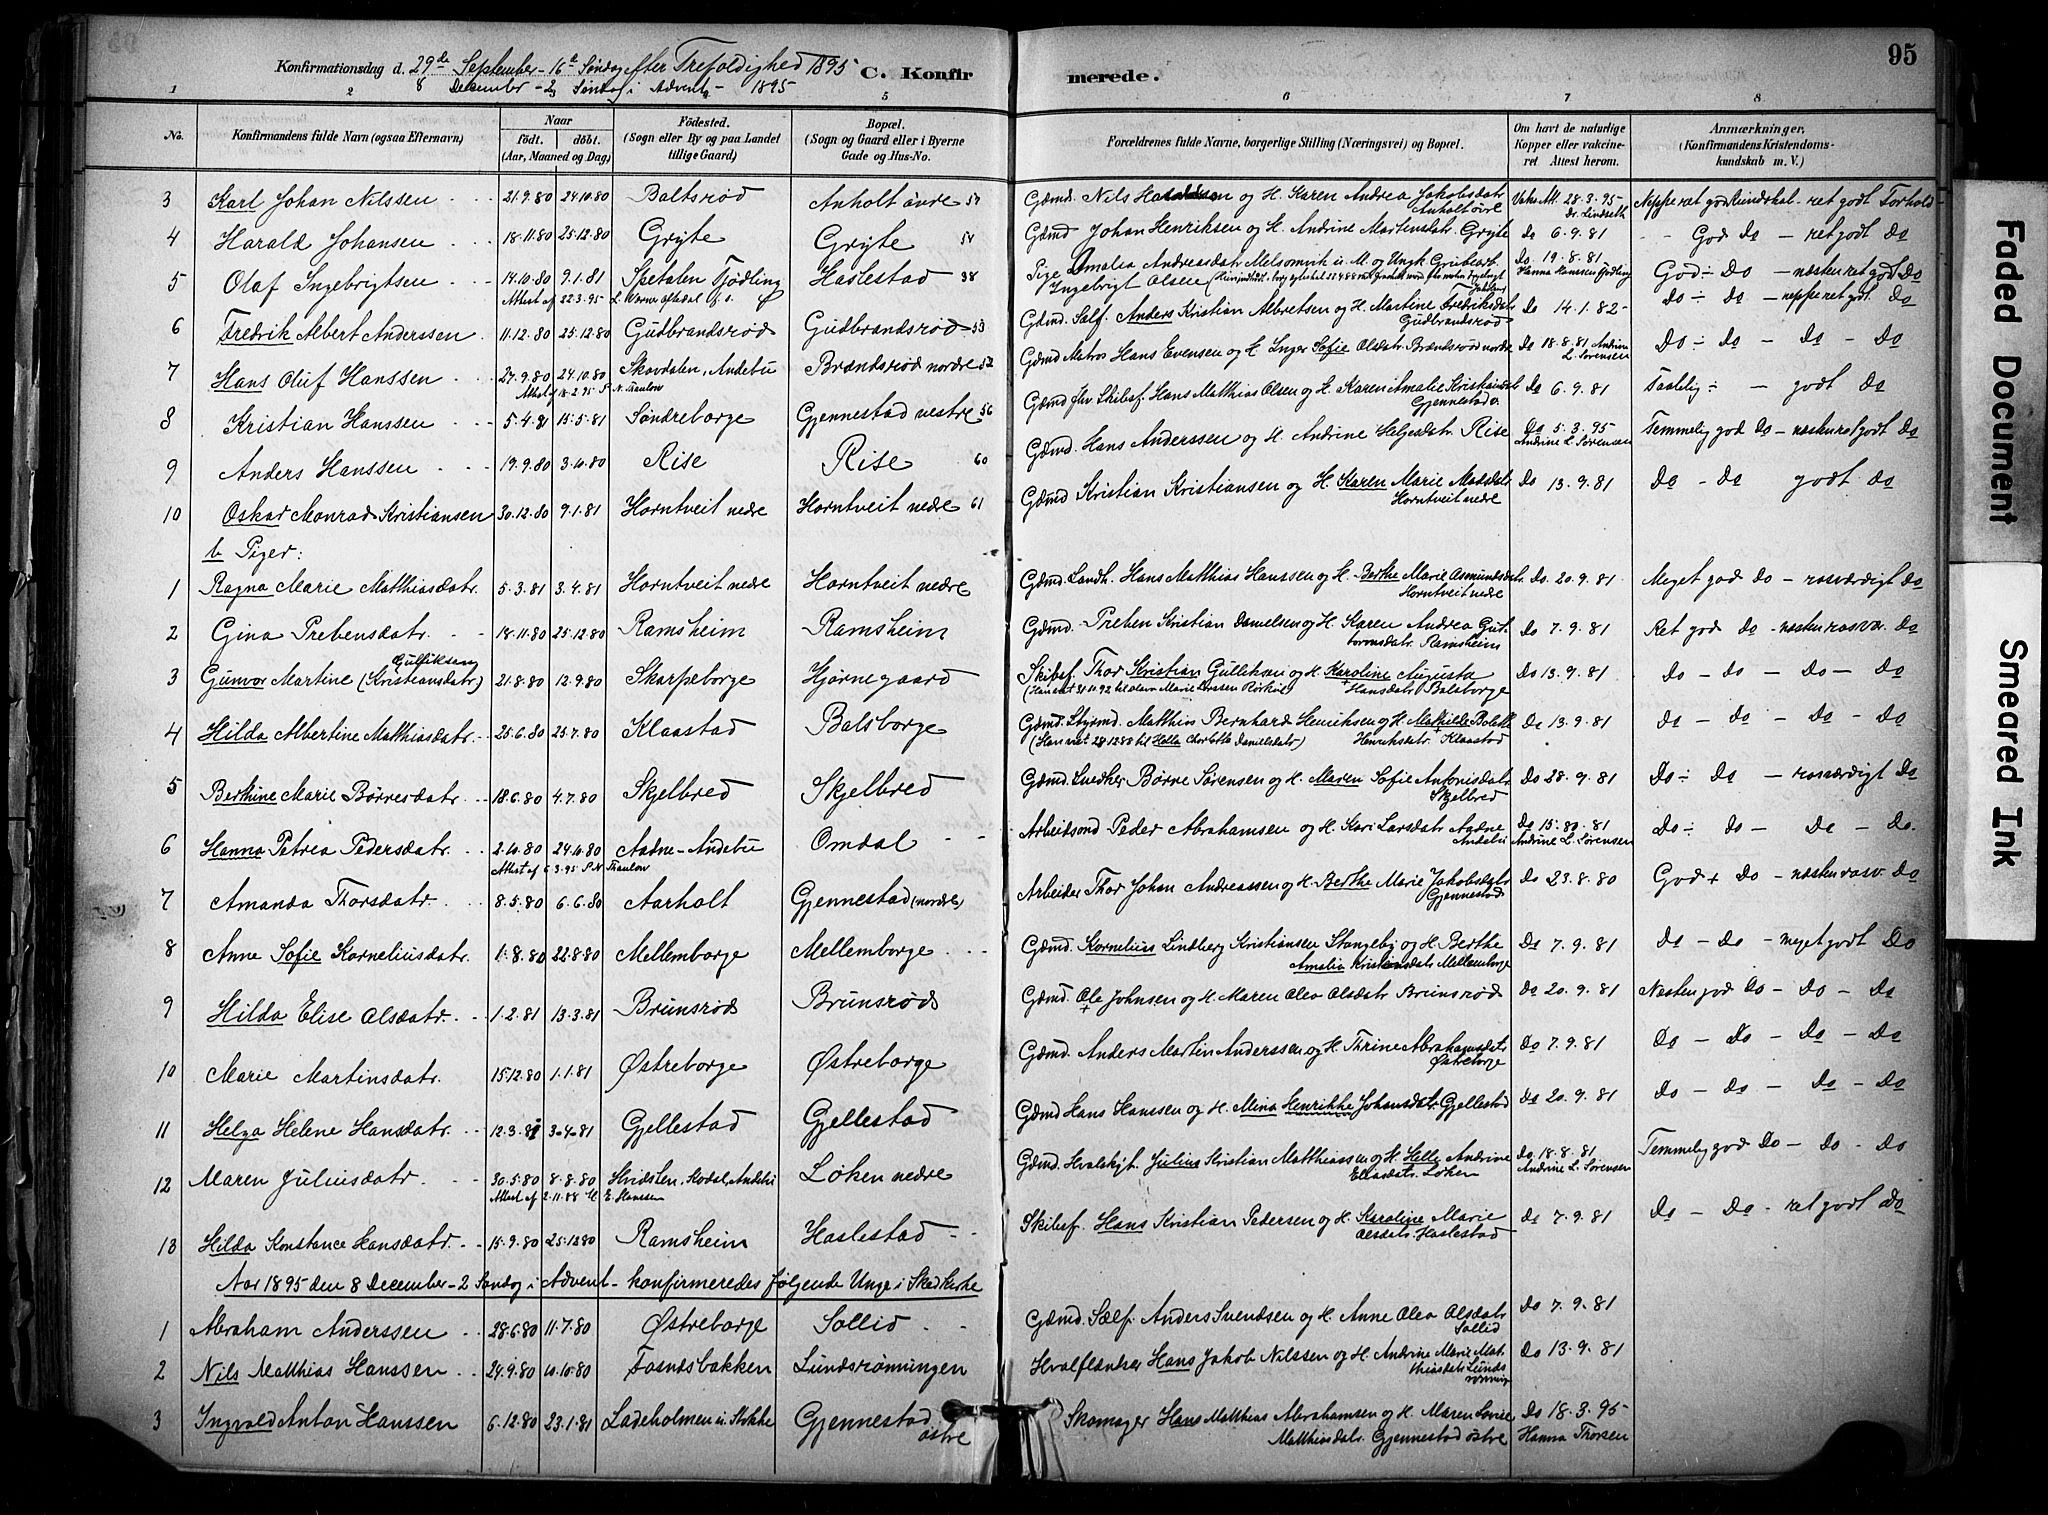 95
Konfirmationsdag d. 29de September - 16de Søndag efter Trefoldighed 1895 C. Konfirmerede.
8 December - 2 Søndag i Advent - 1895
1 2 3 4 5 6 7 8
No. Konfirmandens fulde Navn (ogsaa Efternavn) Naar født. døbt. (Aar, Maaned og Dag) Fødested. (Sogn eller By og paa Landet tillige Gaard) Bopæl. (Sogn og Gaard eller i Byerne Gade og Hus-No. Forældrenes fulde Navne, borgerlige Stilling (Næringsvei) og Bopæl. Om havt de naturlige Kopper eller vakcineret Attest herom. Anmærkninger. (Konfirmandens Kristendomskundskab m. V.)
3 Karl Johan Nilssen 21.9.80 24.10.80 Baltsrød Anholt øvre Gdmd. Nils og H. Karen Andrea Jakobsdatr. Anholt øvre 28.3.95 Dr. Lindseth Neppe ret god Kundskab - ret godt Forhold
4 Harald Johansen 18.11.80 25.12.80 Gryte Gryte 54 Gdmd Johan Henriksen og H. Andrine Martensdatr. Gryte Do 6.9.81 God Do - ret godt Do
5 Olaf Ingebrigtsen 14.10.80 9.1.81 Spetalen Tjødling Haslestad 38 Pige Amalia Andreasdatr Melsomvik u. M. og Ungk Grubearb. Ingebrigt Olsen Do 19.8.81 Hanna Hanssen God ÷ Do - næsten ret godt Do
Attest af 22.3.95
6 Fredrik Albert Anderssen 11.12.80 25.12.80 Gudbrandsrød Gudbrandsrød 53 Gdmd. Sælf. Anders Kristian Albretsen og H. Martine Fredriksdatr Gudbrandsrød Do 14.1.82 Do ÷ Do - neppe ret godt Do
7 Hans Oluf Hanssen 27.9.80 24.10.80 Skovdalen, Andebu Brændsrød nordre 52 Gdmd Matros Hans Evensen og H. Inger Sofie Olsdatr. Brændsrød nordre Do 18.8.81 Andrine L. Sørensen Do ÷ Do - Do - Do
Attest af 18.2.95 P. N. Thaulow
8 Kristian Hanssen 5.4.81 15.5.81 Søndreborge Gjennestad vestre 56 Gdmd fhv Skibsf. Hans Matthias Olsen og H. Karen Amalie Kristiansdatr Gjennestad v. Do 6.9.81 Taalelig ÷ - godt Do
9 Anders Hanssen 19.9.80 3.10.80 Rise Rise 60 Gdmd. Hans Anderssen og H. Andrine Helgesdatr. Rise Do 5.3.95 Andrine L. Sørensen Temmelig god Do - næsten ret godt Do
10 Oskar Monrad Kristiansen 30.12.80 9.1.81 Horntveit nedre Horntveit nedre 61 Gdmd Kristian Kristiansen og H. Karen Marie Madsdatr. Horntveit nedre Do 13.9.81 Do - Do godt Do
b Piger:
1 Ragna Marie Matthiasdatr. 5.3.81 3.4.81 Horntveit nedre Horntveit nedre Gdmd. Landh. Hans Matthias Hanssen og H. Berthe Marie Asmundsdatr. Horntveit nedre Do. 20.9.81 Meget god Do - rosværdigt Do
2 Gina Prebensdatr. 18.11.80 25.12.80 Ramsheim Ramsheim Gdmd. Preben Kristian Danielsen og H. Karen Andrea Guttormsdatr. Ramsheim Do 7.9.81 Ret god Do - næsten rosv. Do
3 Gunvor Martine (Kristiansdatr.) 21.8.80 12.9.80 Skarpeborge Hjørnegaard Skibsf. Thor Kristian Gulliksen og H. Karoline Augusta Hansdatr. Balsborge Do 13.9.81 Do - Do - Do - Do
4 Hilda Albertine Matthiasdatr. 25.6.80 25.7.80 Klaastad Balsborge Gdmd. Styrmd. Matthias Bernhard Henriksen og H. Mathilde Bolette Henriksdatr. Klaastad Do 13.9.81 Do - Do - Do - Do
(Han viet 28 12 80 til Helle Charlotte Danielsdatr)
5 Berthine Marie Børresdatr. 18.6.80 4.7.80 Skjelbred Skjelbred Gdmd. Snedker Børre Sørensen og H. Maren Sofie Antonisdatr. Skjelbred Do 28.9.81 Do ÷ Do - rosværdigt Do
6 Hanna Petrea Pedersdatr. 2.10.80 24.10.80 Aadne - Andebu Omdal Arbeidsmd Peder Abrahamsen og H. Kari Larsdatr. Aadne Andebu Andrine L. Sørensen Do ÷ Do - Do - Do.
Attest af 6.3.95 P. N. Thaulow
7 Amanda Thorsdatr. 8.5.80 6.6.80 Aarholt Gjennestad (nordre) Arbeider Thor Johan Andreassen og H. Berthe Marie Jakobsdatr. Gjennestad Do 23.8.80 God + Do - næsten rosv. Do
8 Anne Sofie Korneliusdatr. 1.8.80 22.8.80 Mellemborge Mellemborge Gdmd. Kornelius Lindberg Kristiansen Stangeby og H. Berthe Amalia Kristiansdatr. Mellemborge Do 7.9.81 Do - Do - meget godt Do
9 Hilda Elise Olsdatr. 1.2.81 13.3.81 Brunsrød Brunsrød Gdmd. Ole Johnsen og H. Maren Olea Olsdatr. Brunsrød Do 20.9.81 Næsten god Do - Do - Do
10 Marie Martinsdatr. 15.12.80 1.1.81 Østreborge Østreborge Gdmd. Anders Martin Anderssen og H. Thrine Abrahamsdatr. Østreborge Do 7.9.81 Do - Do - Do - Do
11 Helga Helene Hansdatr. 12.3.81 3.4.81 Gjellestad Gjellestad Gdmd Hans Hanssen og H. Mina Henrikke Johansdatr. Gjellestad Do 20.9.81 Do - Do - Do - Do
12 Maren Juliusdatr. 30.5.80 8.8.80 Hvidsten, Kodal, Andebu Løken nedre Gdmd. Hvalskyt. Julius Kristian Matthiassen og H. Helle Andrine Eliasdatr. Løken Do. 18.8.81 Andrine L. Sørensen Temmelig god Do - Do - Do
Attest af 2.11.88 E. Hansen
13 Hilda Konstance Hansdatr. 15.9.80 25.12.80 Ramsheim Haslestad Skibsf. Hans Kristian Pedersen og H. Karoline Marie Olsdatr. Haslestad Do 7.9.81 Do - Do - ret godt Do
Aar 1895 den 8 December - 2 Søndag i Advent - konfirmeredes følgende Unge i Skee Kirke
1 Abraham Anderssen 28.6.80 11.7.80 Østreborge Sollid Gdmd. Sælf. Anders Svendsen og H. Anne Olea Olsdatr. Sollid Do 7.9.81
2 Nils Matthias Hanssen 24.9.80 10.10.80 Fosnesbakken Lundsrønningen Hvalflænker Hans Jakob Nilssen og H. Andrine Marie Matthiasdatr. Lundsrønning Do 13.9.81
3 Ingvald Anton Hanssen 6.12.80 23.1.81 Ladeholmen i Stokke Gjennestad østre Skomager Hans Matthias Abrahamsen og H. Maren Lovise Matthiasdatr. Gjennestad østre Do 18.3.95 Hanna Thorsen
Faded Document
Smeared Ink